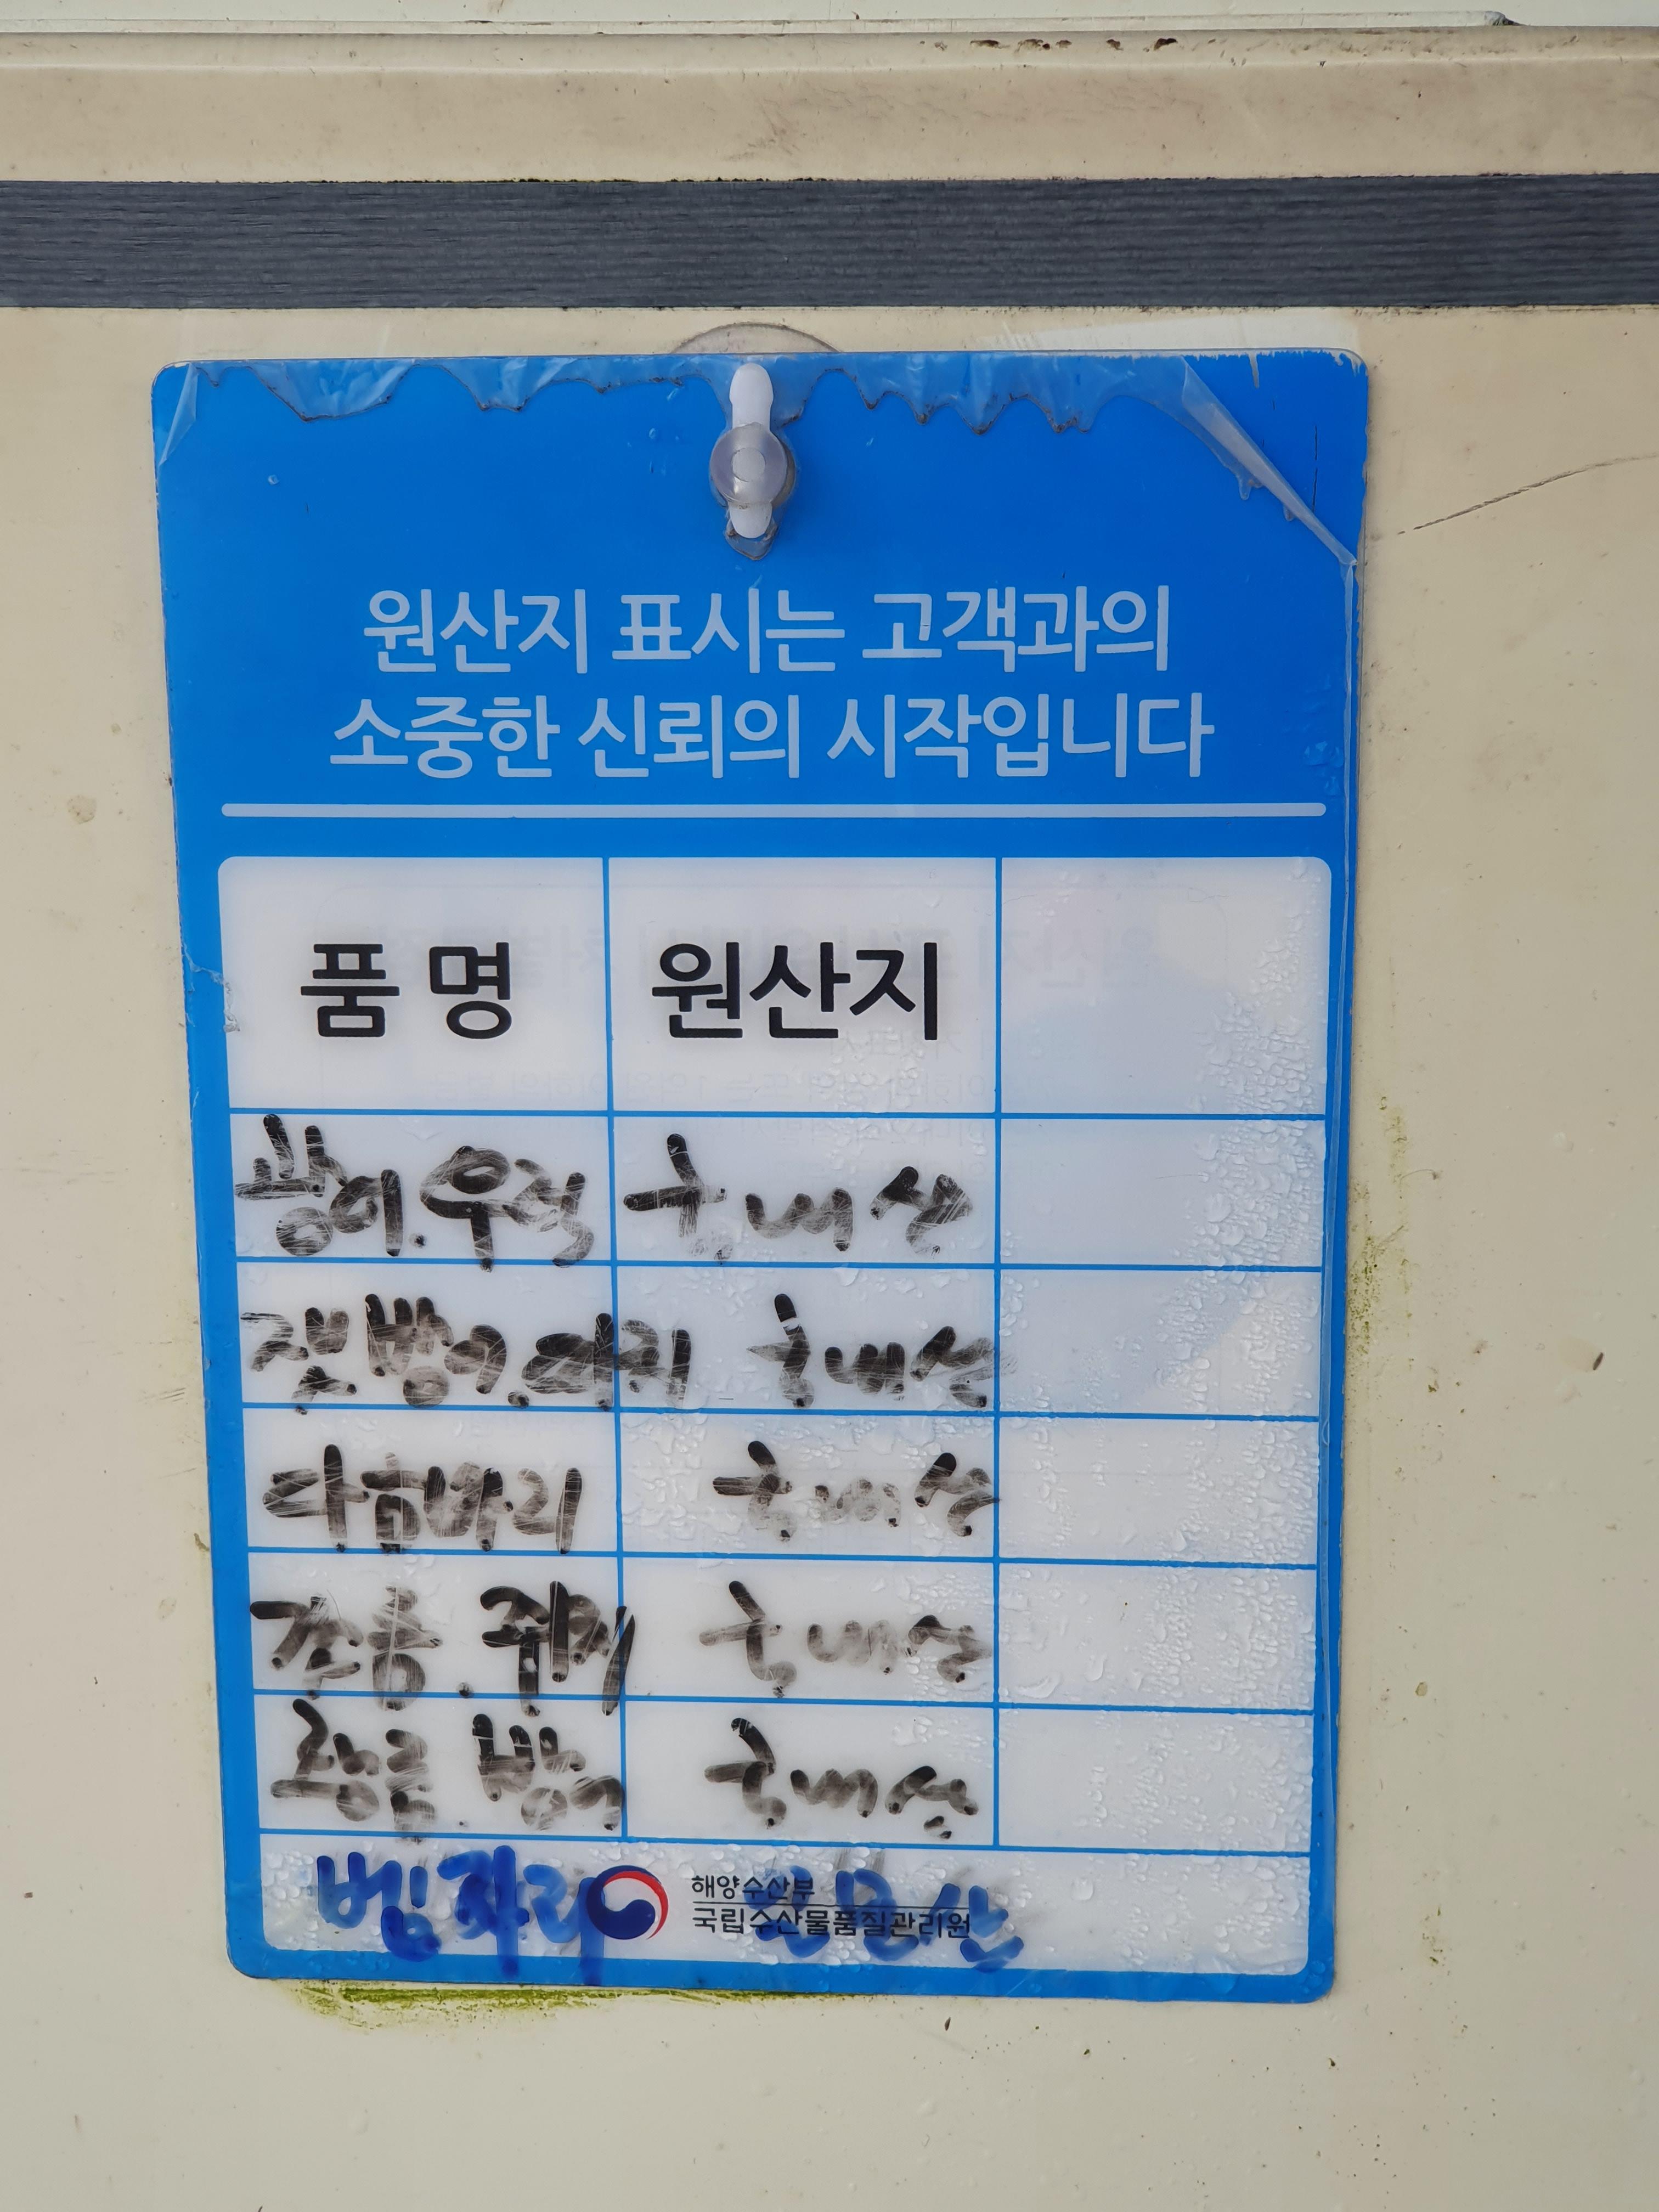 원산지 표시는 고객과의
소중한 신뢰의 시작입니다
품명 원산지
광어.우럭 국내산
잿방어. 국내산
다금바리 국내산
국내산
방어 국내산
벵자리
해양수산부
국립수산물품질관리원